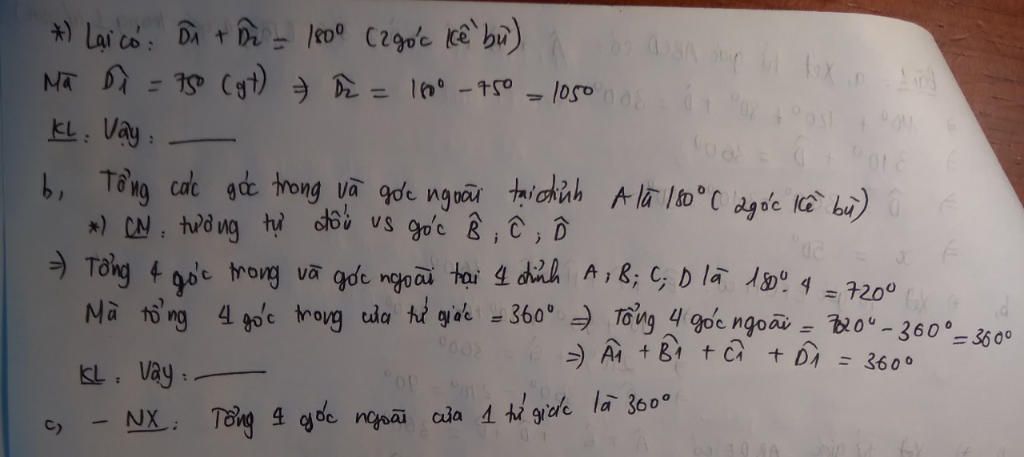 *) Lại có: D̂1 + D̂2 = 180° (2 góc kề bù)
Mà D̂1 = 75° (gt) ⇒ D̂2 = 180° - 75° = 105°
KL: Vậy: ____
b, Tổng các góc trong và góc ngoài tại đỉnh A là 180° (2 góc kề bù)
*) CN: tương tự đối vs góc B̂; Ĉ; D̂
⇒ Tổng 4 góc trong và góc ngoài tại 4 đỉnh A; B; C; D là 180°. 4 = 720°
Mà tổng 4 góc trong của tứ giác = 360° ⇒ Tổng 4 góc ngoài = 720° - 360° = 360°
⇒ Â1 + B̂1 + Ĉ1 + D̂1 = 360°
KL: Vậy: ____
c, - NX: Tổng 4 góc ngoài của 1 tứ giác là 360°